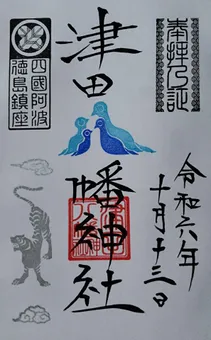 奉拝之証
津田
幡神社
令和六年
十月十三日
四國阿波
徳島鎮座